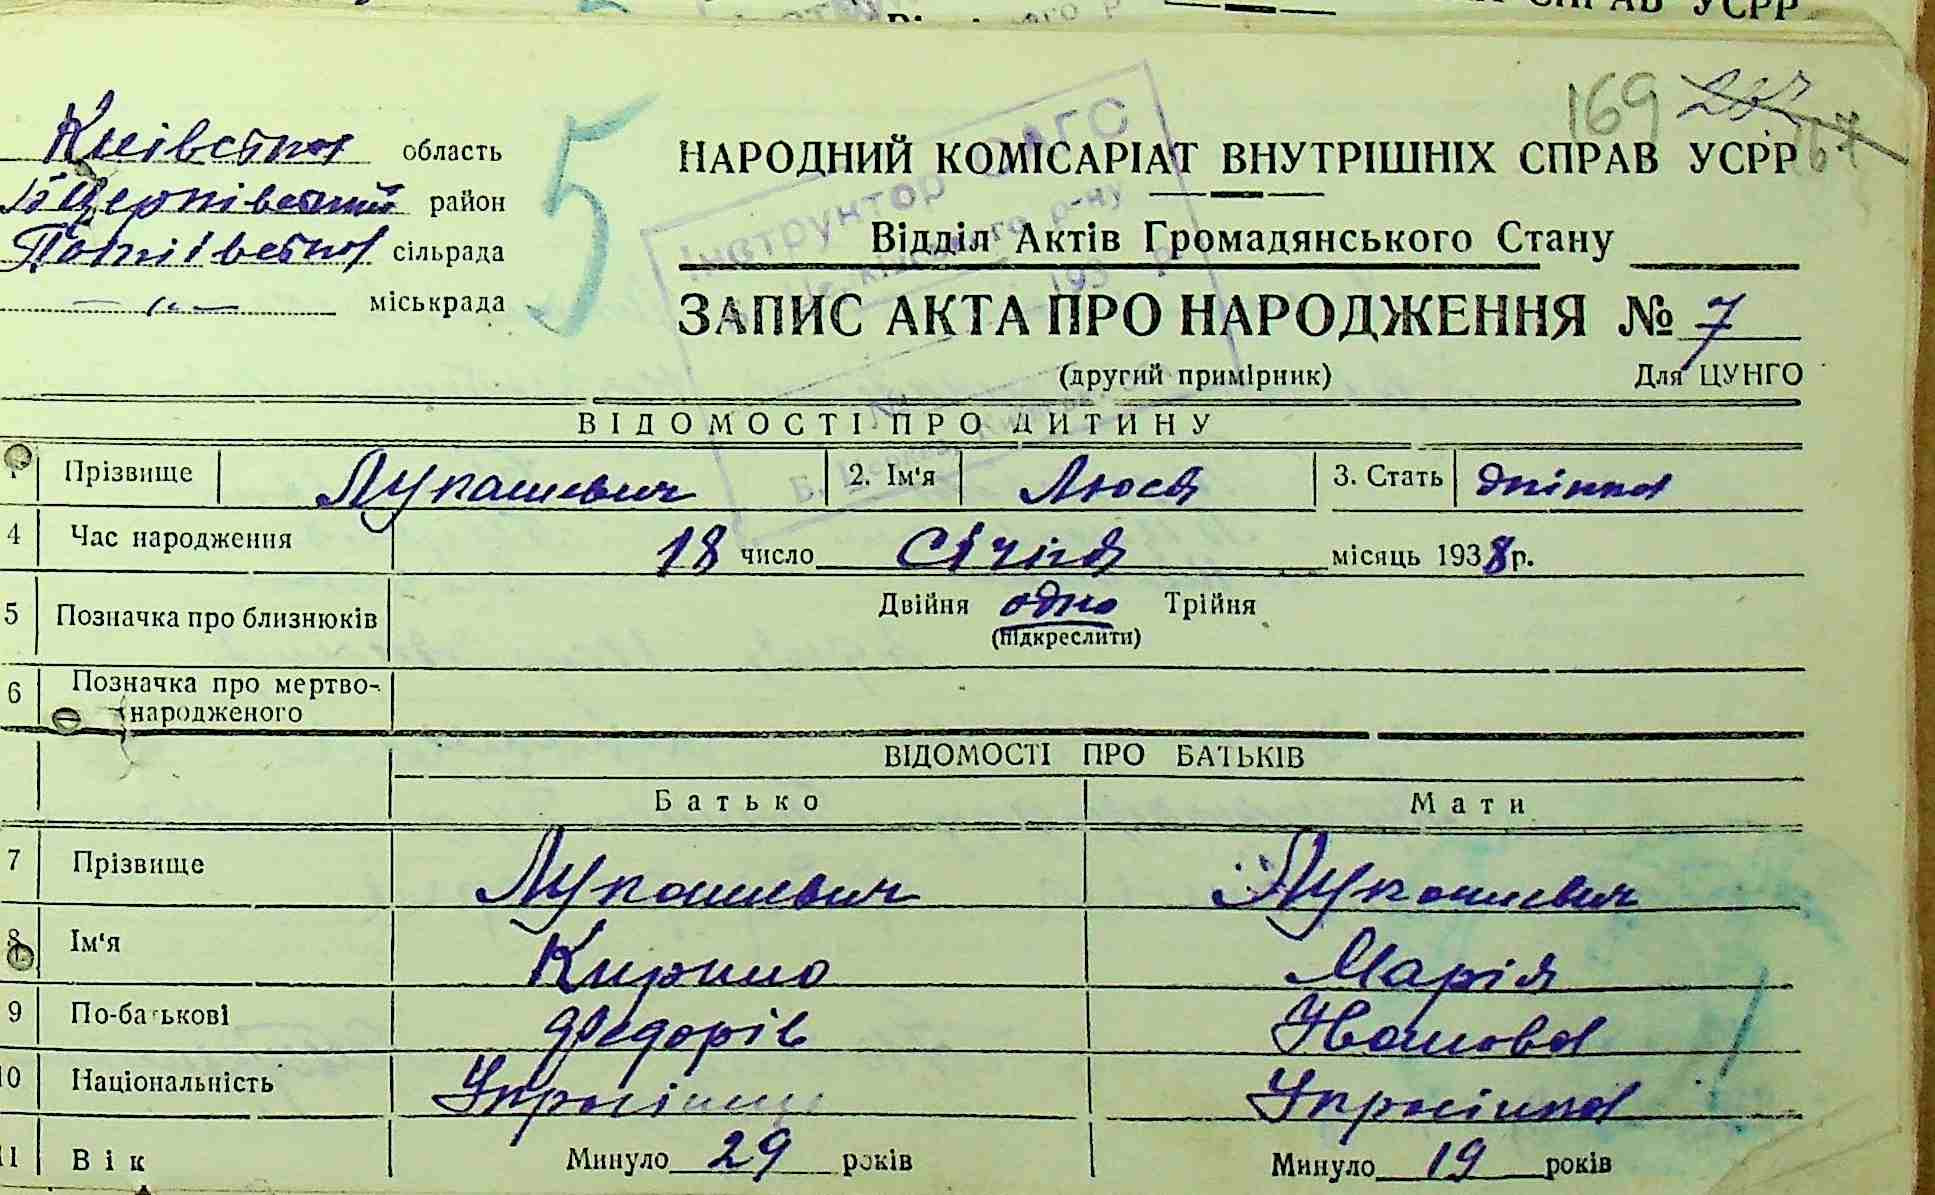 169
Київська область
Б Церківський район
сільрада
міськрада
5
Інструктор ЗАГС
НАРОДНИЙ КОМІСАРІАТ ВНУТРІШНІХ СПРАВ УСРР
Відділ Актів Громадянського Стану
ЗАПИС АКТА ПРО НАРОДЖЕННЯ № 7
(другий примірник) Для ЦУНГО
ВІДОМОСТІ ПРО ДИТИНУ
1 Прізвище Лукашевич 2. Ім'я Люся 3. Стать жіноча
4 Час народження 18 число Січня місяць 1938 р.
5 Позначка про близнюків Двійня одно Трійня
(підкреслити)
6 Позначка про мертво-
народженого
ВІДОМОСТІ ПРО БАТЬКІВ
Батько Мати
7 Прізвище Лукашевич Лукашевич
8 Ім'я Кирило Марія
9 По-батькові Федорів
10 Національність Українець Українка
11 Вік Минуло 29 років Минуло 19 років